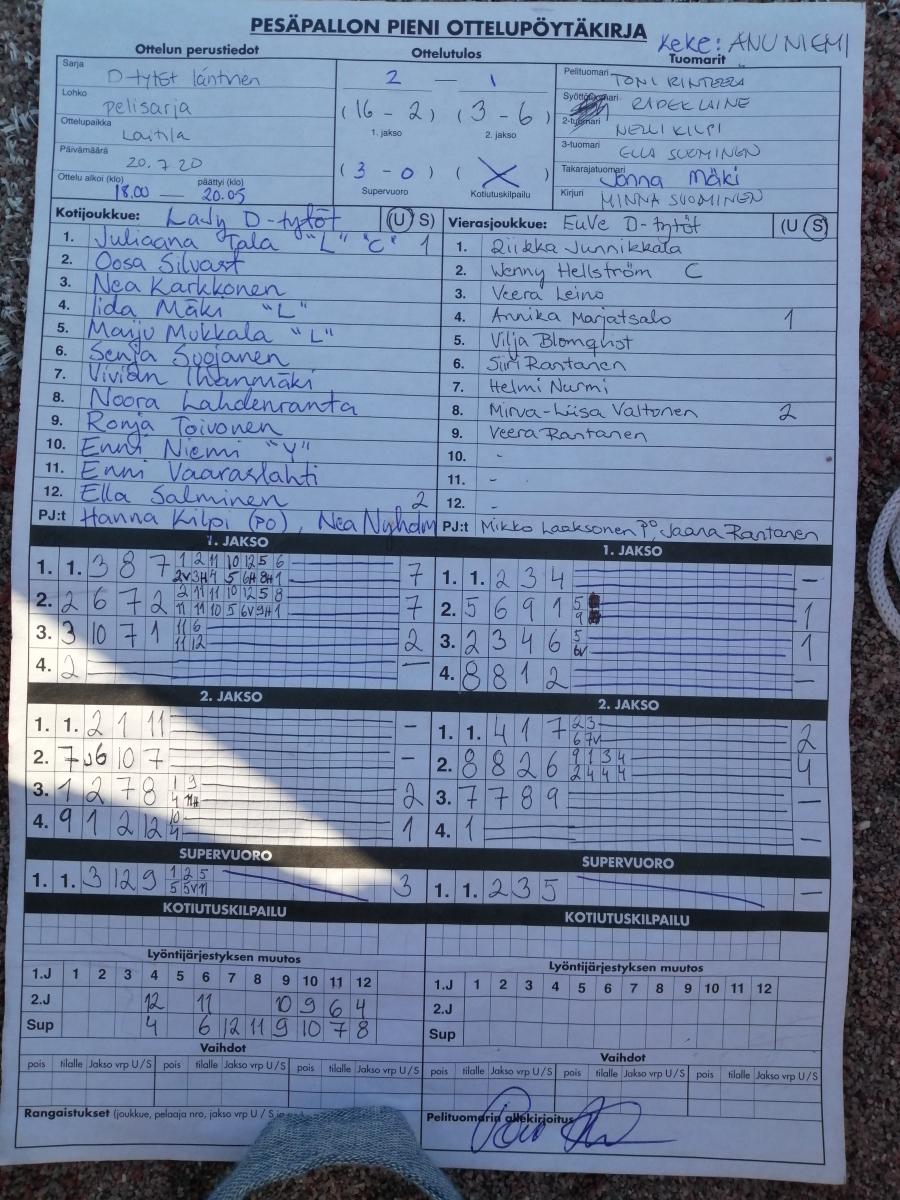 PESÄPALLON PIENI OTTELUPÖYTÄKIRJA
Keke: ANU NIEMI
Ottelun perustiedot
Ottelutulos
Tuomarit
Sarja D-tytöt läntinen
Lohko pelisarja
Ottelupaikka Laitila
Päivämäärä 20.7.20
Ottelu alkoi (klo) päättyi (klo)
18.00 — 20.05
2 — 1
(16 - 2) (3 - 6)
1. jakso 2. jakso
(3 - 0) ( )
Supervuoro Kotiutuskilpailu
Pelituomari TONI
Syöttötuomari LAINE
2-tuomari NELLI KILPI
3-tuomari ELLA SUOMINEN
Takarajatuomari Jonna Mäki
Kirjuri MINNA SUOMINEN
Kotijoukkue: LaJy D-tytöt (U S)
1. Juliaana Tala "L" "C" 1
2. Oosa Silvast
3. Nea Karkkonen
4. Iida Mäki "L"
5. Marju Mukkala "L"
6. Senja Suojanen
7. Vivian Ihanmäki
8. Noora Lahdenranta
9. Ronja Toivonen
10. Enni Niemi "Y"
11. Enni Vaaraslahti
12. Ella Salminen 2
PJ:t Hanna Kilpi (PO), Nea Nyholm
Vierasjoukkue: EuVe D-tytöt (U S)
1. Riikka Junnikkala
2. Wenny Hellström C
3. Veera Leino
4. Annika Marjatsalo 1
5. Vilja Blomqvist
6. Siiri Rantanen
7. Helmi Nurmi
8. Mirva-Liisa Valtonen 2
9. Veera Rantanen
10. -
11. -
12. -
PJ:t Mikko Laaksonen PO, Jaana Rantanen
1. JAKSO
1. 1. 3 8 7 1 2 11 10 12 5 6 7
2V 3H 4 5 6H 8H 1
2. 2 6 7 2 2 11 11 10 12 5 8 7
11 11 10 5 6V 9H 1
3. 3 10 7 1 11 6 2
11 12
4. 2 —
2. JAKSO
1. 1. 2 1 11 -
2. 7 6 10 7 -
3. 1 2 7 8 1 9 2
4 11H
4. 9 1 2 12 10 1
4
SUPERVUORO
1. 1. 3 12 9 1 2 5 3
5 5V 11
KOTIUTUSKILPAILU
Lyöntijärjestyksen muutos
1.J 1 2 3 4 5 6 7 8 9 10 11 12
2.J 12 11 10 9 6 4
Sup 4 6 12 11 9 10 7 8
Vaihdot
pois tilalle Jakso vrp U / S pois tilalle Jakso vrp U / S pois tilalle Jakso vrp U / S
Rangaistukset (joukkue, pelaaja nro, jakso vrp U / S
1. JAKSO
1. 1. 2 3 4 —
2. 5 6 9 1 5 1
9
3. 2 3 4 6 5 1
6V
4. 8 8 1 2 —
2. JAKSO
1. 1. 4 1 7 2 3 2
6 7V
2. 8 8 2 6 9 1 3 4 4
2 4 4 4
3. 7 7 8 9 —
4. 1 —
SUPERVUORO
1. 1. 2 3 5 —
KOTIUTUSKILPAILU
Lyöntijärjestyksen muutos
1.J 1 2 3 4 5 6 7 8 9 10 11 12
2.J
Sup
Vaihdot
pois tilalle Jakso vrp U / S pois tilalle Jakso vrp U / S pois tilalle Jakso vrp U / S
Pelituomarin allekirjoitus